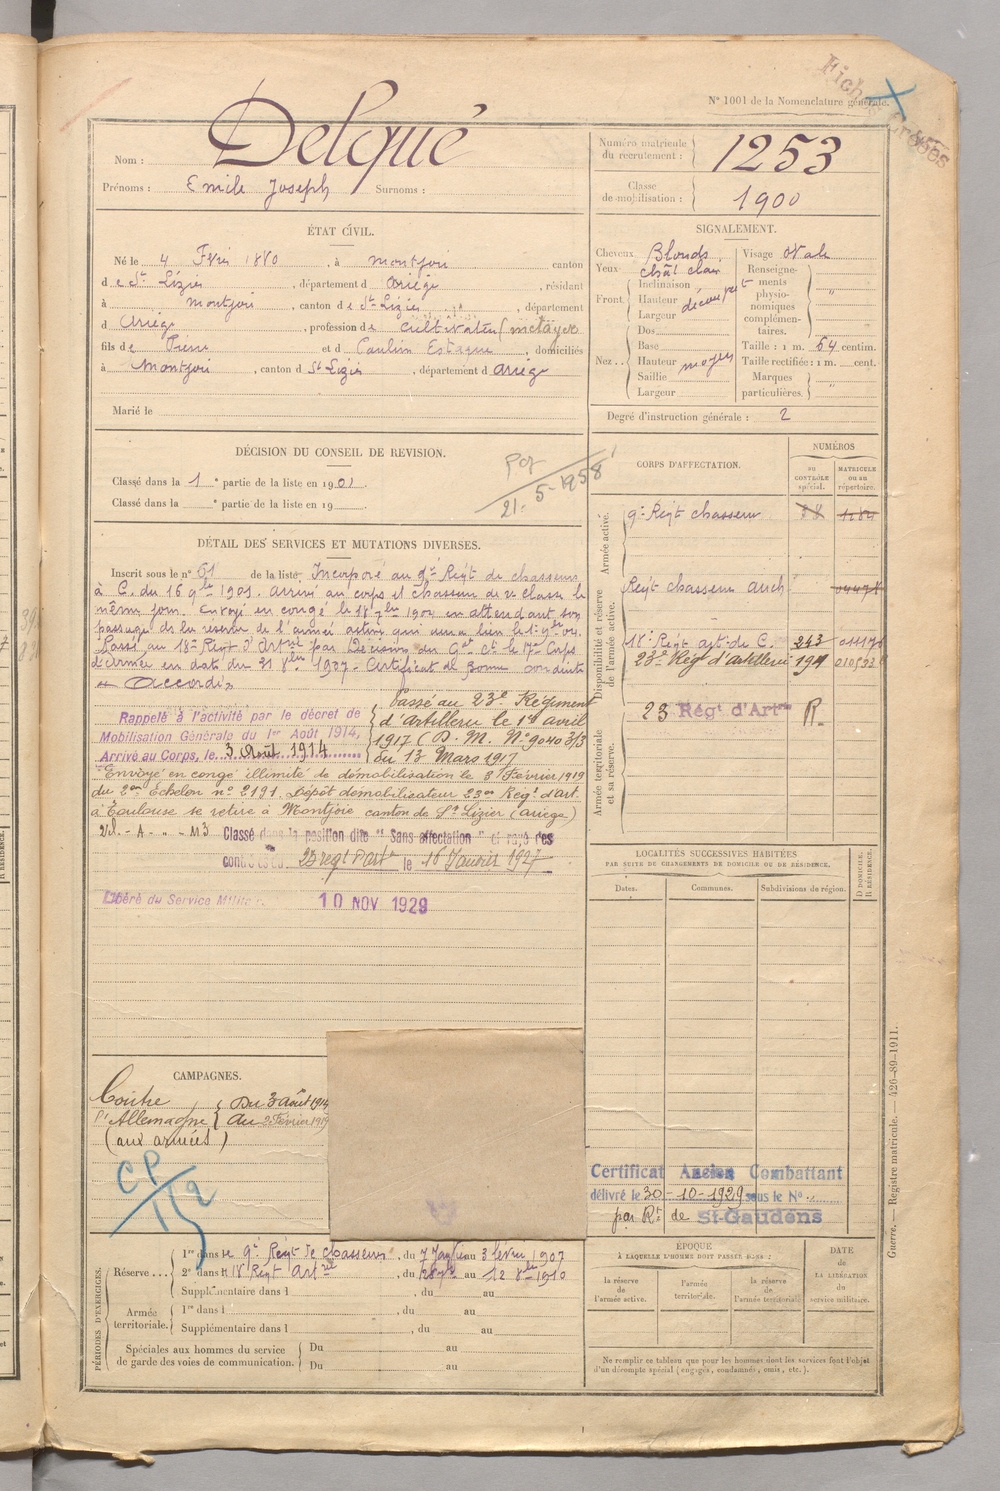 N° 1001 de la Nomenclature générale.
Nom : Delqué
Prénoms : Emile Joseph Surnoms :
Numéro matricule du recrutement : 1253
Classe de mobilisation : 1900
ÉTAT CIVIL.
Né le 4 Fév 1880, à Montjoie canton
de St Lizier, département d Ariège, résidant
à Montjoie, canton de St-Lizier, département
d Ariège, profession de cultivateur (métayer
fils de Pierre et d Pauline Estaque, domiciliés
à Montjoie, canton d St Lizier, département d Ariège
Marié le
SIGNALEMENT.
Cheveux Blonds.
Yeux chât clair
Front Inclinaison
Hauteur découvert
Largeur
Nez Dos
Base
Hauteur moyen
Saillie
Largeur
Visage Ovale
Renseignements physionomiques complémentaires. "
Taille : 1 m. 64 centim.
Taille rectifiée : 1 m. cent.
Marques particulières. "
Degré d'instruction générale : 2
DÉCISION DU CONSEIL DE REVISION.
Classé dans la 1e partie de la liste en 1901.
Classé dans la e partie de la liste en 19
21-5-1958
DÉTAIL DES SERVICES ET MUTATIONS DIVERSES.
Inscrit sous le n° 61 de la liste. Incorporé au 9e Régt de chasseurs
à C. du 16 9bre 1901. arrivé au corps et chasseur de 2e classe le
même jour. Envoyé en congé le 18 7bre 1904 en attendant son
passage ds la réserve de l'armée active qui aura lieu le 1er 9bre 04.
Passé au 18e Régt d'Artrie par Décision du Gal Ct le 17e Corps
d'Armée en date du 21 1907. Certificat de bonne conduite
"Accordé"
Rappelé à l'activité par le décret de
Mobilisation Générale du 1er Août 1914,
Arrivé au Corps, le 3 Août 1914
Passé au 23e Régiment
d'Artillerie le 1er avril
1917 (D. M. N° 9040 3/3
du 13 Mars 1917
Envoyé en congé illimité de démobilisation le 8 Février 1919
du 2em Echelon n° 2191. Dépôt démobilisateur 23em Régt d'art
à Toulouse se retire à Montjoie canton de St Lizier (ariège)
Classé dans la position dite "Sans affectation" et rayé des
contrôles du 23 regt d'artie le 16 Janvier 1927
Libéré du Service Militaire 10 NOV 1929
CORPS D'AFFECTATION.
NUMÉROS
AU CONTRÔLE spécial.
MATRICULE ou au répertoire.
Armée active.
9e Régt chasseurs 88
Disponibilité et réserve de l'armée active.
Regt chasseurs auch
18e Régt art. de C. 243 01117
23e Régt d'Artillerie 194
Armée territoriale et sa réserve.
23 Régt d'Artrie R.
LOCALITÉS SUCCESSIVES HABITÉES
PAR SUITE DE CHANGEMENTS DE DOMICILE OU DE RÉSIDENCE.
Dates. Communes. Subdivisions de région. D DOMICILE. R RÉSIDENCE.
CAMPAGNES.
Contre l'Allemagne { Du 3 août 1914
au 2 Février 1919
(aux armées)
CP
Certificat Ancien Combattant
délivré le 30-10-1929 sous le N°
par Rt de St-Gaudens
PÉRIODES D'EXERCICES.
Réserve 1re dans le 9e Regt de chasseurs, du 7 Janv au 3 févr 1907
2e dans le 18 Regt Artrie, du au 12 8bre 1910
Supplémentaire dans l , du au
Armée territoriale. 1re dans l , du au
Supplémentaire dans l , du au
Spéciales aux hommes du service de garde des voies de communication. Du au
Du au
ÉPOQUE
À LAQUELLE L'HOMME DOIT PASSER DANS :
la réserve de l'armée active. l'armée territoriale. la réserve de l'armée territoriale
DATE DE LA LIBÉRATION du service militaire.
Ne remplir ce tableau que pour les hommes dont les services font l'objet
d'un décompte spécial (engagés, condamnés, omis, etc.).
Guerre. — Registre matricule. — 426-89-1911.